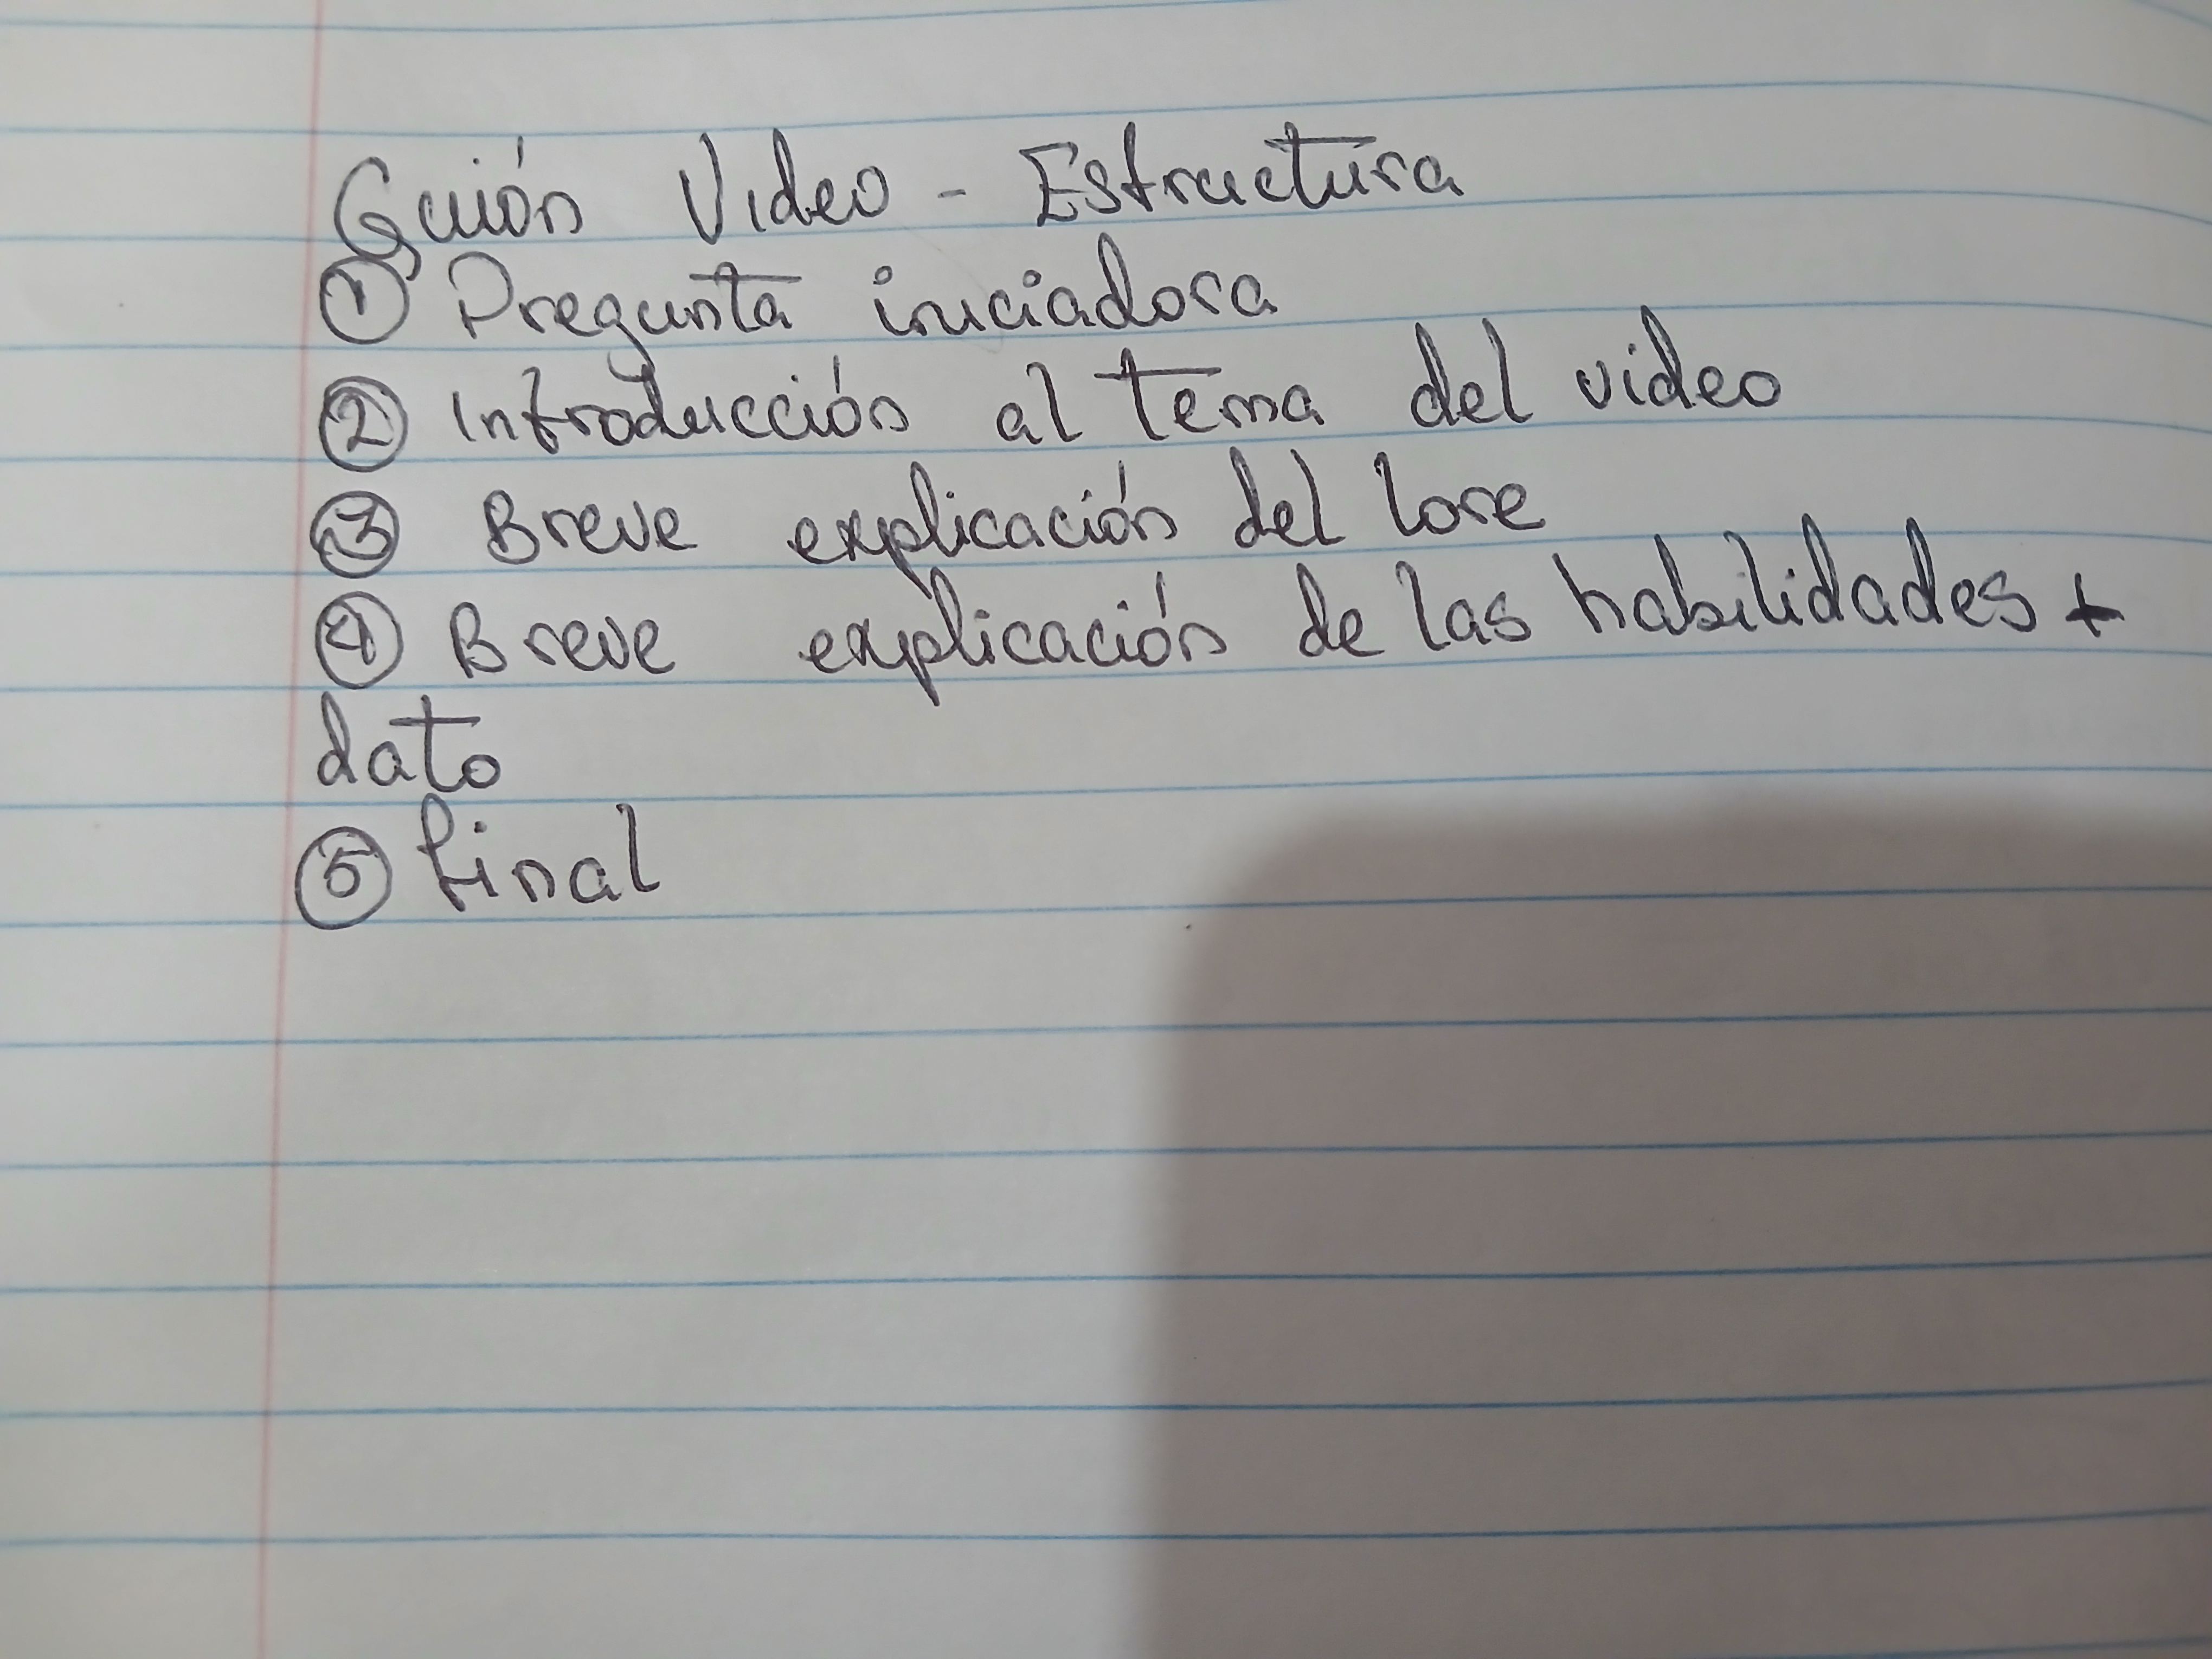 Guión Video - Estructura
① Pregunta iniciadora
② Introducción al tema del video
③ Breve explicación del lore
④ Breve explicación de las habilidades +
dato
⑤ final